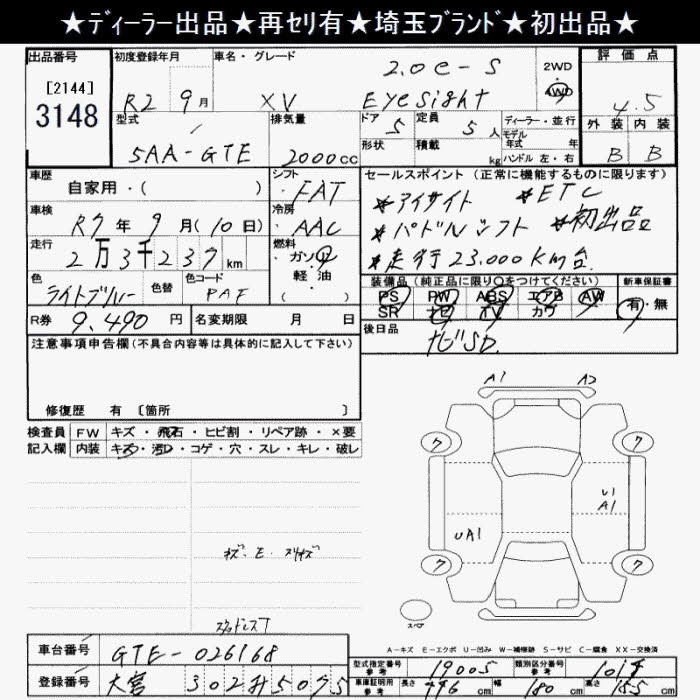 ★ディーラー出品★再セリ有★埼玉ブランド★初出品★
出品番号 初度登録年月 車名・グレード 2WD 評価点
[2144] 2.0e-S
3148 R2 9月 XV EyeSight 4WD 4.5
型式 排気量 ドア 5 定員 5人 ディーラー・並行 外装 内装
モデル年式 年
5AA-GTE 2000cc 形状 積載 kg ハンドル 左・右 B B
車歴 シフト セールスポイント (正常に機能するものに限ります)
自家用・( ) ・FAT ＊アイサイト ＊ETC
車検 冷房 ＊パドルシフト ＊初出品
R7年 9月(10日) AAC
走行 燃料 ＊走行23,000km台
2万3千237km ガソリン
色 色替 色コード 軽・油 装備品 (純正品に限り○をつけてください) 新車保証書
ライトブルー PAF ・( ) PS PW ABS エアB AW 有・無
SR ナビ TV カワ
R券 9,490円 名変期限 月 日 後日品
注意事項申告欄(不具合内容等は具体的に記入して下さい) ナビSD.
修復歴 有 [箇所 ]
A1 A2
検査員 FW キズ・飛石・ヒビ割・リペア跡・×要
記入欄 内装 キズ・汚れ・コゲ・穴・スレ・キレ・破レ
ワ ワ
U1
A1
UA1
キズ・E・スリキズ
ワ ワ
スペア
A-キズ E-エクボ U-凹み W-補修跡 S-サビ C-腐食 XX-交換済
車台番号 GTE-026168
型式指定番号 参考 19005 類別区分番号 参考
登録番号 大宮 302 5075
車庫証明用 参考 長さ cm 幅 180cm 高さ 155cm